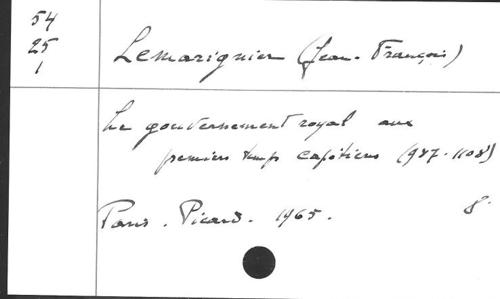 54
25
1
Lemarignier (Jean-François)
Le gouvernement royal aux
premiers temps capétiens (987-1108)
Paris. Picard. 1965. 8.